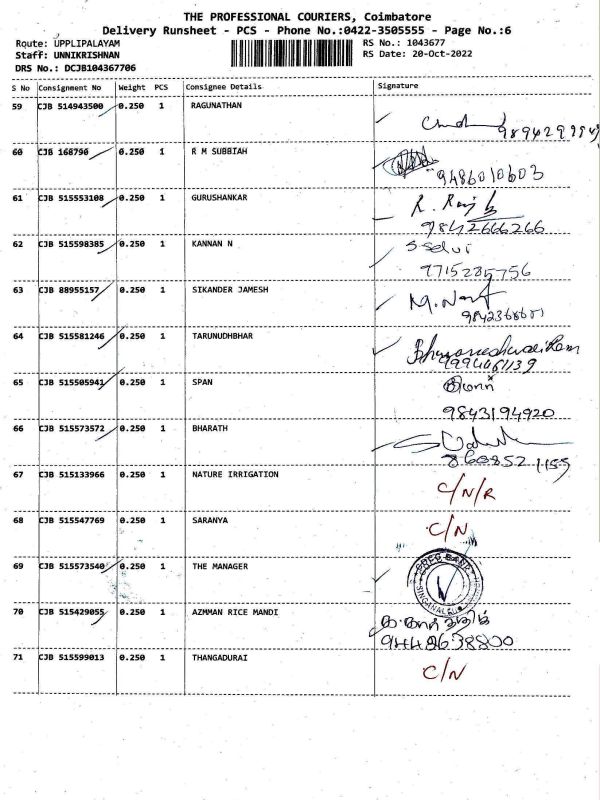 THE PROFESSIONAL COURIERS, Coimbatore
Delivery Runsheet - PCS - Phone No.:0422-3505555 - Page No.:6
Route: UPPLIPALAYAM
RS No.: 1043677
Staff: UNNIKRISHNAN
RS Date: 20-Oct-2022
DRS No.: DCJB104367706
S No Consignment No Weight PCS Consignee Details Signature
59 CJB 514943500 0.250 1 RAGUNATHAN
60 CJB 168796 0.250 1 R M SUBBIAH
9486010603
61 CJB 515553108 0.250 1 GURUSHANKAR
9842666266
62 CJB 515598385 0.250 1 KANNAN N S Selvi
7715285756
63 CJB 88955157 0.250 1 SIKANDER JAMESH
64 CJB 515581246 0.250 1 TARUNUDHBHAR
65 CJB 515505941 0.250 1 SPAN
9843194920
66 CJB 515573572 0.250 1 BHARATH
8608521155
67 CJB 515133966 0.250 1 NATURE IRRIGATION C/N/R
68 CJB 515547769 0.250 1 SARANYA C/N
69 CJB 515573540 0.250 1 THE MANAGER
70 CJB 515429055 0.250 1 AZMMAN RICE MANDI
71 CJB 515599013 0.250 1 THANGADURAI C/N